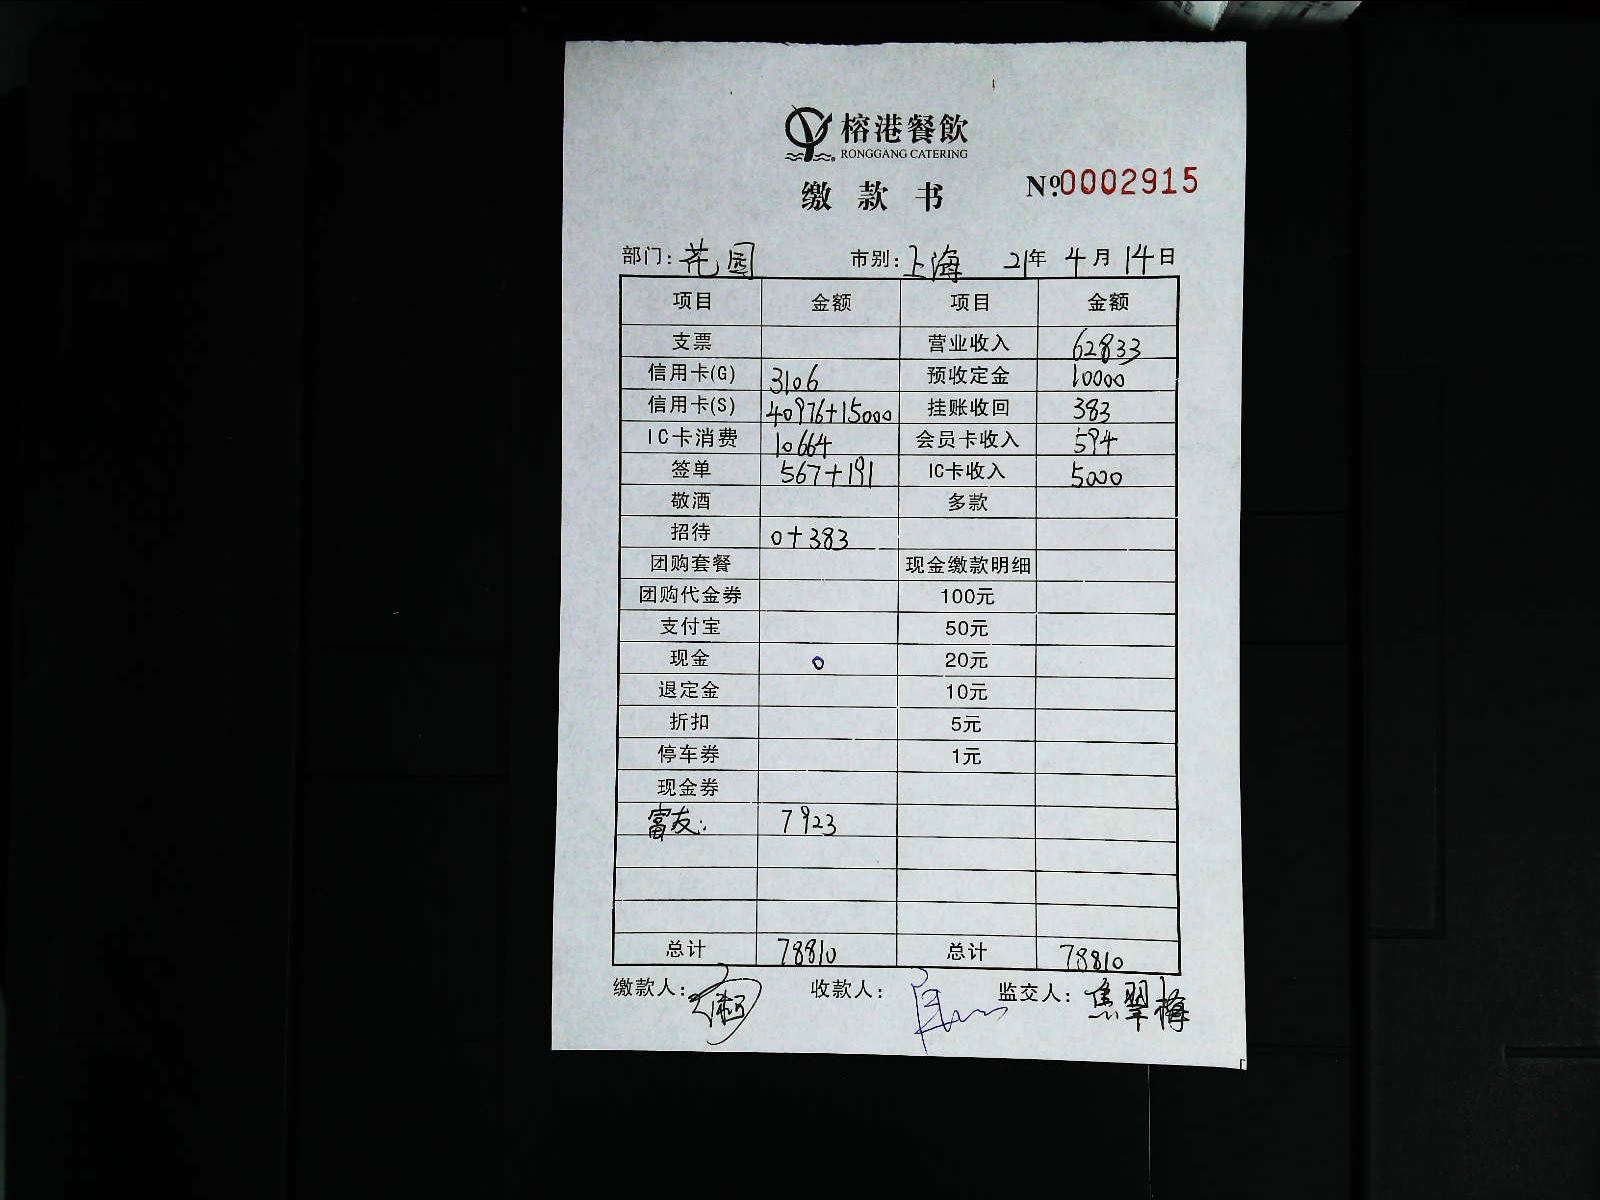 榕港餐飲
RONGGANG CATERING
缴款书 Nº:0002915
部门: 花园 市别: 上海 21年 4月 14日
项目 金额 项目 金额
支票 营业收入 62833
信用卡(G) 3106 预收定金 10000
信用卡(S) 40976+15000 挂账收回 383
IC卡消费 10664 会员卡收入 594
签单 567+191 IC卡收入 5000
敬酒 多款
招待 0+383
团购套餐 现金缴款明细
团购代金券 100元
支付宝 50元
现金 0 20元
退定金 10元
折扣 5元
停车券 1元
现金券
富友: 7923
总计 78810 总计 78810
缴款人: 收款人: 监交人: 焦翠梅